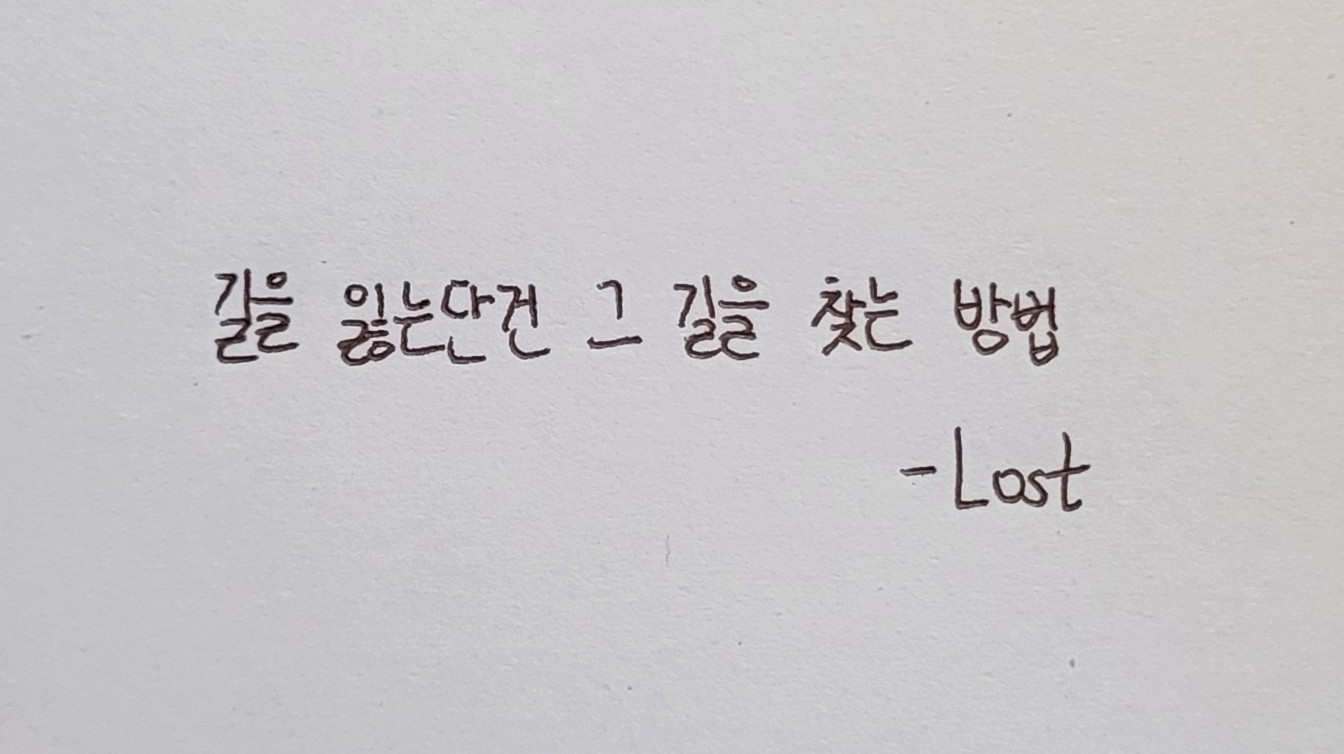 길을 잃는단건 그 길을 찾는 방법
-Lost